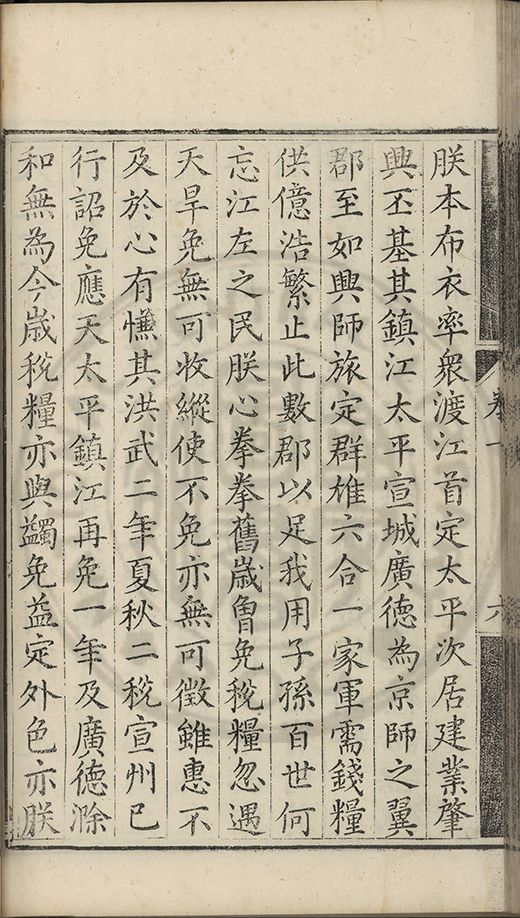 朕本布衣率衆渡江首定太平次居建業肇
興丕基其鎮江太平宣城廣德為京師之翼
郡至如興師旅定群雄六合一家軍需錢糧
供億浩繁止此數郡以足我用子孫百世何
忘江左之民朕心拳拳舊嵗曾免稅糧忽遇
天旱免無可收縱使不免亦無可徵雖惠不
及於心有憮其洪武二年夏秋二稅宣州已
行詔免應天太平鎮江再免一年及廣德滁
和無為今嵗稅糧亦與蠲免益定外色亦朕
卷一
六